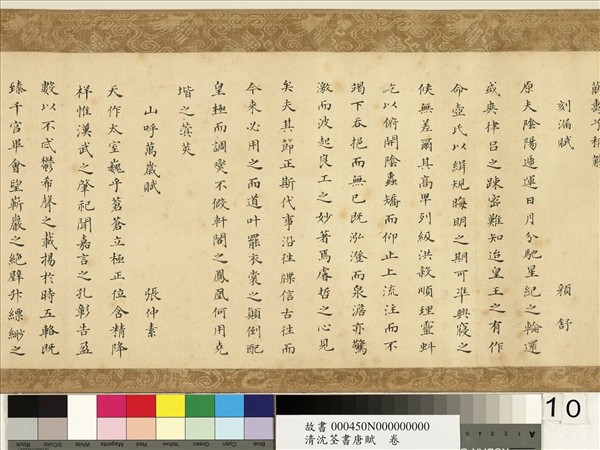 刻漏賦 顏舒
原夫陰陽遞運日月分馳星紀之輪還
或爽律呂之踈密難知迨皇王之有作
命壺氏以緝規晦明之期可準興寢之
候無差爾其高卑列級洪殺順理靈虯
屹以俯開陰蟲矯而仰止上流注而不
竭下吞挹而無已既泓澄而泉澹亦驚
激而波起良工之妙著焉睿哲之心見
矣夫其節正斯代事沿往牒信古往而
今來必用之而道叶罷衣裳之顛倒配
皇極而調燮不假軒閣之鳳凰何用堯
堦之蓂莢
山呼萬歲賦 張仲素
天作太室巍乎蒼蒼立極正位含精降
祥惟漢武之肇祀聞嘉言之孔彰告盈
數以不忒鬱希聲之載揚於時五輅既
臻千官畢會望嶄巖之絕壁升縹緲之
Black 3/Color White Magenta Red Yellow Green Cyan Blue
故書 000450N000000000
清沈荃書唐賦 卷
10